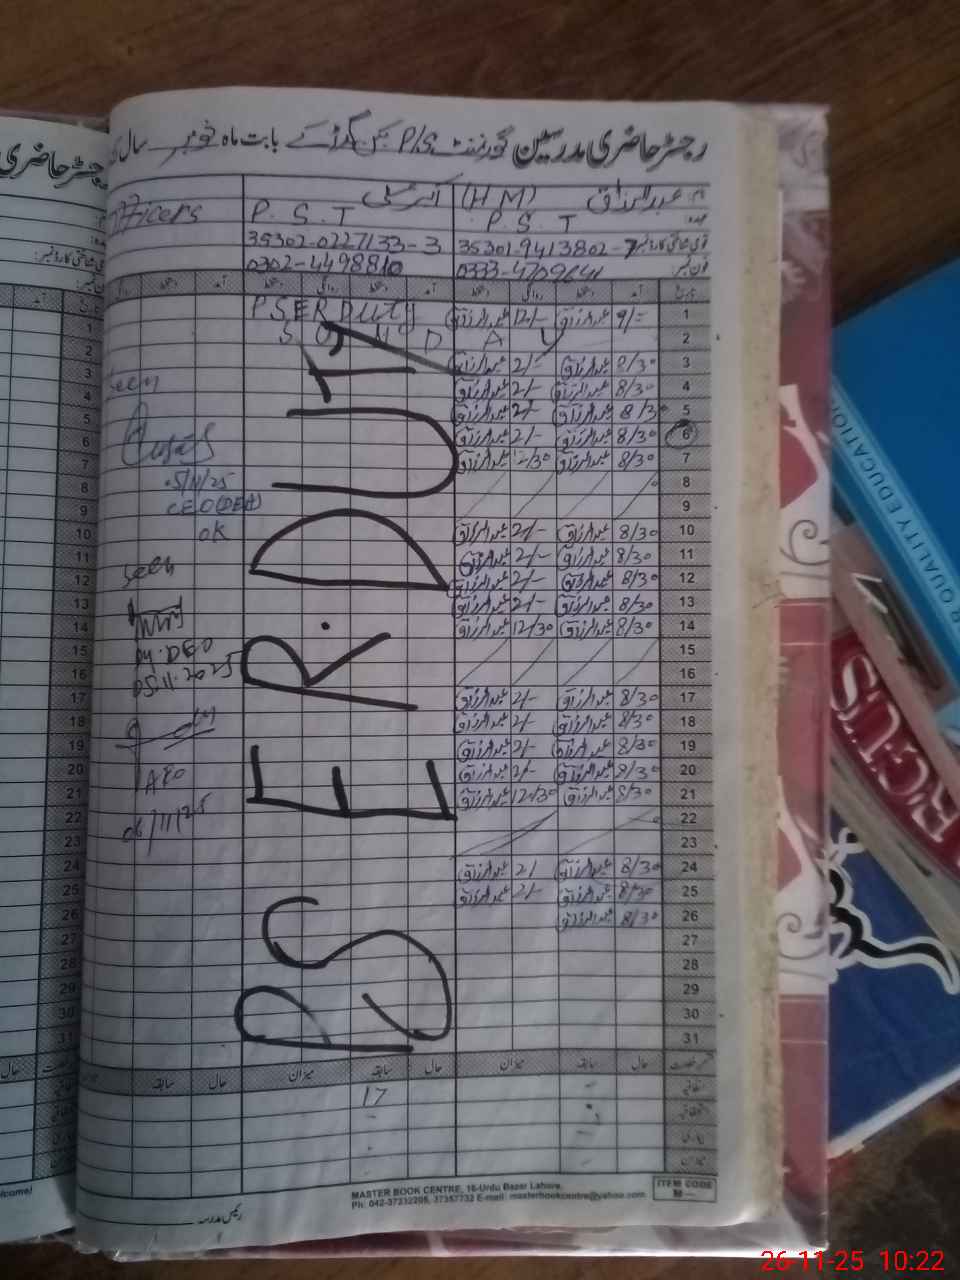 رجسٹر حاضری مدرسین گورنمنٹ P/S بابت ماہ نومبر سال
رجسٹر حاضری
نام: عبدالرزاق (H M)
عہدہ: P. S. T
P. S. T
Officers
قومی شناختی کارڈ نمبر: 35301-9413802-7
35302-0227133-3
فون نمبر: 0333-4709641
0302-4498810
تاریخ آمد دستخط روانگی دستخط آمد دستخط روانگی دستخط آمد
1 9/= عبدالرزاق 12/- عبدالرزاق PSER Duty
2 S U N D A Y
3 8/30 عبدالرزاق 2/- عبدالرزاق
4 8/30 عبدالرزاق 2/- عبدالرزاق
5 8/30 عبدالرزاق 2/- عبدالرزاق
6 8/30 عبدالرزاق 2/- عبدالرزاق
7 8/30 عبدالرزاق 12/30 عبدالرزاق
8
9
10 8/30 عبدالرزاق 2/- عبدالرزاق
11 8/30 عبدالرزاق 2/- عبدالرزاق
12 8/30 عبدالرزاق 2/- عبدالرزاق
13 8/30 عبدالرزاق 2/- عبدالرزاق
14 8/30 عبدالرزاق 12/30 عبدالرزاق
15
16
17 8/30 عبدالرزاق 2/- عبدالرزاق
18 8/30 عبدالرزاق 2/- عبدالرزاق
19 8/30 عبدالرزاق 2/- عبدالرزاق
20 8/30 عبدالرزاق 2/- عبدالرزاق
21 8/30 عبدالرزاق 12/30 عبدالرزاق
22
23
24 8/30 عبدالرزاق 2/ عبدالرزاق
25 8/30 عبدالرزاق 2/- عبدالرزاق
26 8/30 عبدالرزاق
27
28
29
30
31
PSER.DUTY
Seen
5/11/25
CEO(DEA)
ok
Seen
Dy.DEO
05.11.2025
AEO
06/11/25
رخصت حال سابقہ میزان حال سابقہ میزان حال سابقہ
اتفاقیہ
17
رئیس مدرسہ
MASTER BOOK CENTRE, 16-Urdu Bazar Lahore.
Ph: 042-37232205, 37357732 E-mail: masterbookcentre@yahoo.com
ITEM CODE
OR QUALITY EDUCATION
26-11-25 10:22